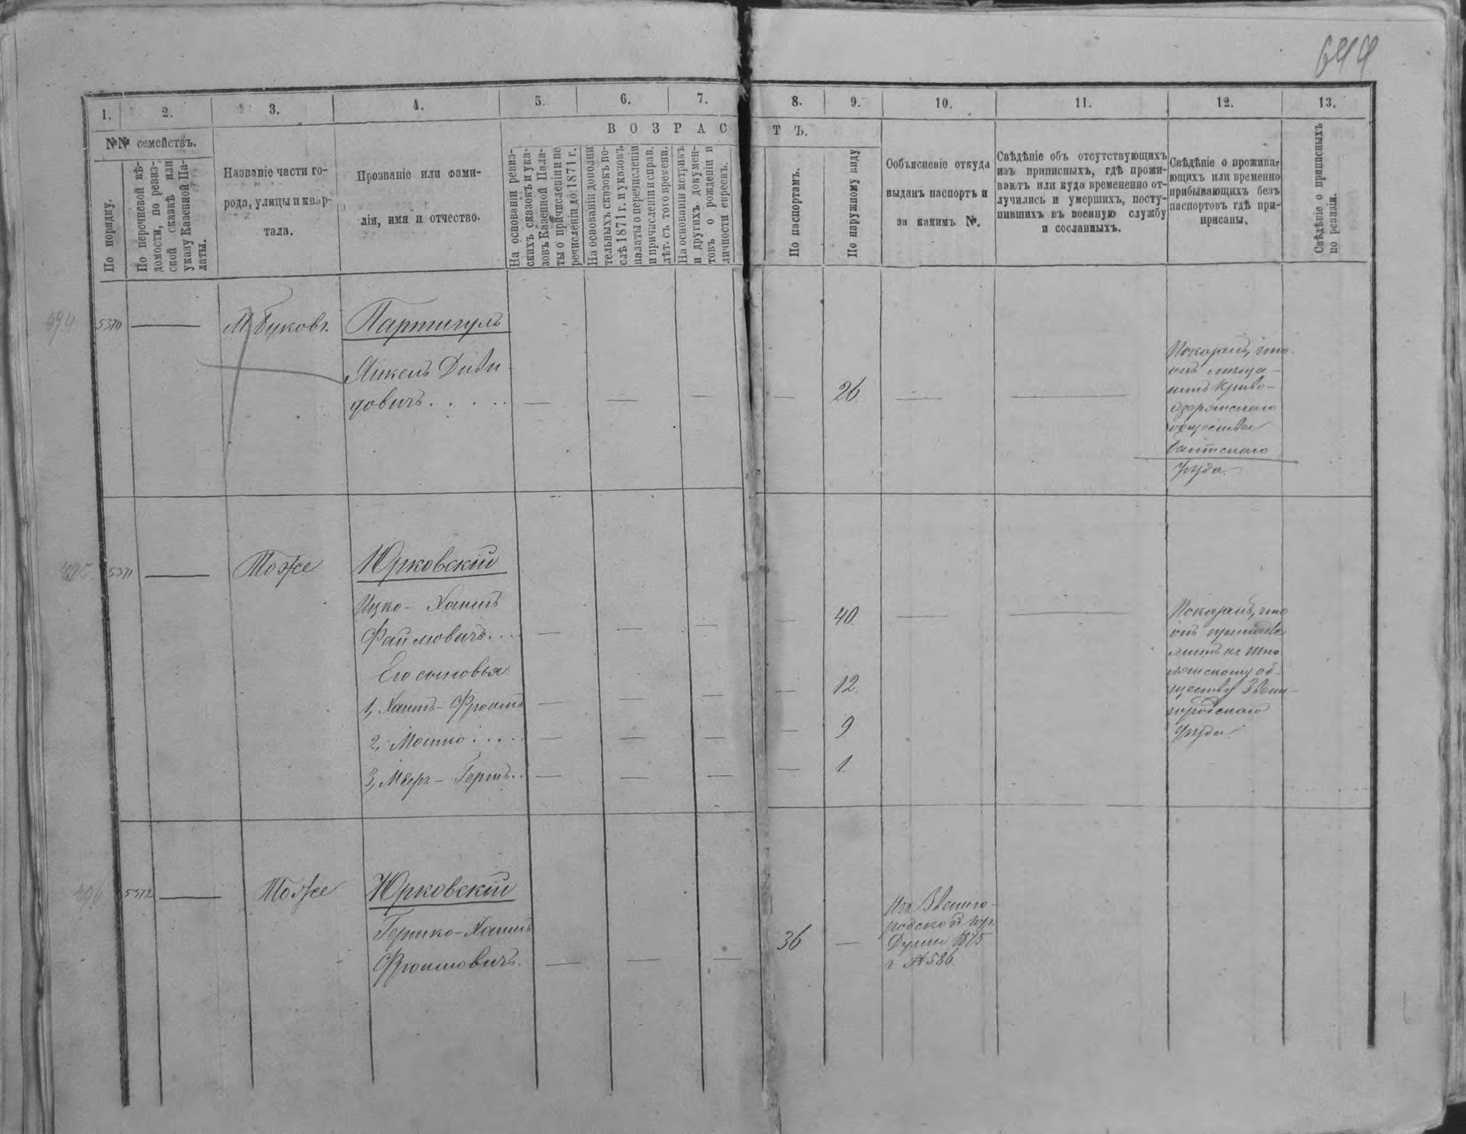 644
1.
2.
3.
4.
5.
6.
7.
8.
9.
10.
11.
12.
13.
№№ семействъ.
По порядку.
По перечневой вѣ-
домости, по ревиз-
ской сказкѣ или
указу Казенной Па-
латы.
Названіе части го-
рода, улицы и квар-
тала.
Прозваніе или фами-
лія, имя и отчество.
ВОЗРАСТЪ.
На основаніи ревиз-
скихъ сказокъ и ука-
зовъ Казенной Пала-
ты о причисленіи и пе
речисленіи до 1871 г.
На основаніи дополни
тельныхъ сказокъ по-
слѣ 1871 г. и указовъ
палаты о перечисленіи
и причисленіи и справ.
лѣт. съ того времени.
На основаніи метрикъ
и другихъ докумен-
товъ о рожденіи и
личности евреевъ.
По паспортамъ.
По наружному виду
Объясненіе откуда
выданъ паспортъ и
за какимъ №.
Свѣдѣніе объ отсутствующихъ
изъ приписныхъ, гдѣ прожи-
ваютъ или куда временно от-
лучились и умершихъ, посту-
пившихъ въ военную службу
и сосланныхъ.
Свѣдѣніе о прожива-
ющихъ или временно
прибывающихъ безъ
паспортовъ гдѣ при-
писаны.
Свѣдѣніе о приписныхъ
по ревизіи.
494
5370
М. Буковъ.
Партигулъ
Янкель Дави
довичъ. . . . .
26.
Показалъ, что
онъ мѣща-
нинъ Криво-
озерянскаго
общества
Балтскаго
уѣзда.
495
5371
Тоже
Юрковскій
Ицко-Хаимъ
Его сыновья
1, Хаимъ-Фроимъ
2, Мошко. . . .
Гершъ. .
40.
12.
9
1.
Показалъ, что
онъ
обществу Звени-
городскаго
уѣзда.
496
5372
Тоже
Юрковскій
Гершко-Хаимъ
Фроимовичъ.
36
Изъ Звениго-
родской Гор.
Думы 1875
г. № 586.